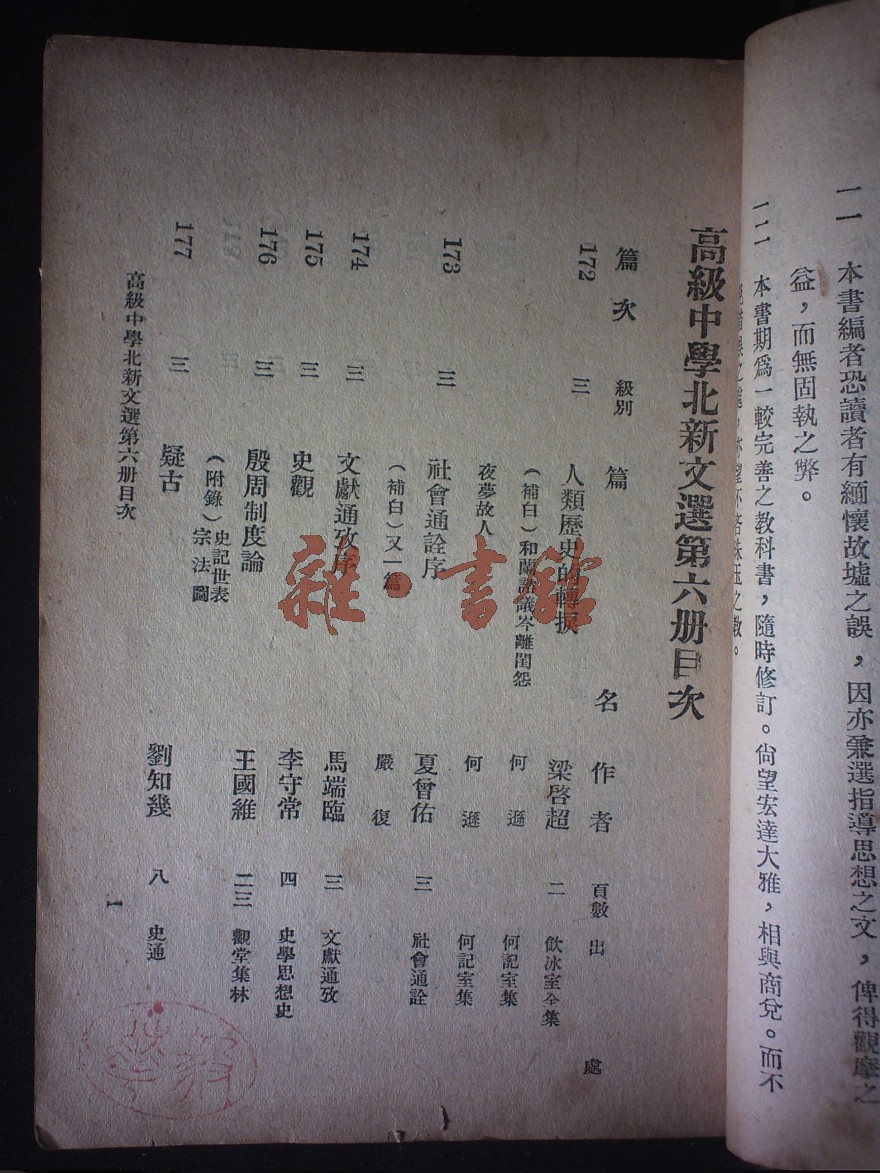 一一　本書編者恐讀者有緬懷故墟之誤，因亦兼選指導思想之文，俾得觀摩之
益，而無固執之弊。
一二　本書期爲一較完善之教科書，隨時修訂。尙望宏達大雅，相與商兌。而不
高級中學北新文選第六册目次
篇次　級別　篇　名　作者　頁數　出　處
172　三　人類歷史的轉捩　梁啓超　二　飲冰室全集
（補白）和蕭諮議岑離閨怨　何遜　何記室集
夜夢故人　何遜　何記室集
173　三　社會通詮序　夏曾佑　三　社會通詮
（補白）又一篇　嚴復
174　三　文獻通攷序　馬端臨　三　文獻通攷
175　三　史觀　李守常　四　史學思想史
176　三　殷周制度論　王國維　二三　觀堂集林
（附錄）史記世表
宗法圖
177　三　疑古　劉知幾　八　史通
高級中學北新文選第六册目次
1
雜·書館